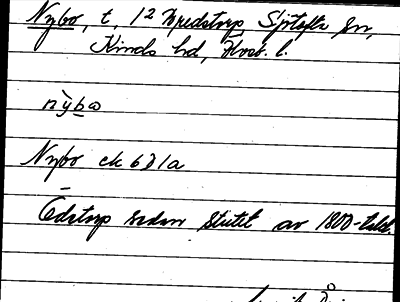 Nybo, t, 12 Bredstorp Sjötofta sn,
Kinds hd, Älvsb. l.
nỳbo
Nybo ek 6D1a
Ödetorp sedan slutet av 1800-talet.